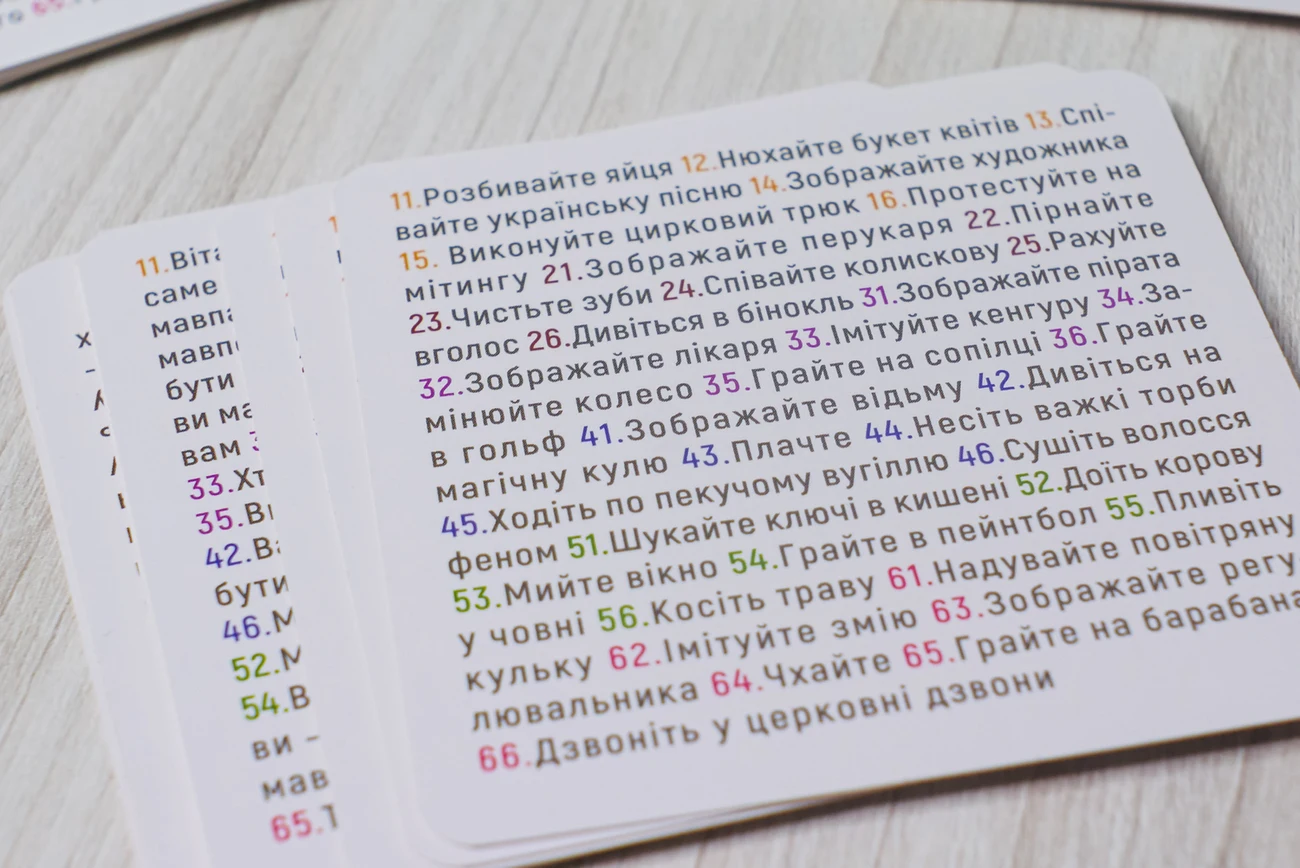 11.Розбивайте яйця 12.Нюхайте букет квітів 13.Спі-
вайте українську пісню 14.Зображайте художника
15. Виконуйте цирковий трюк 16.Протестуйте на
мітингу 21.Зображайте перукаря 22.Пірнайте
23.Чистьте зуби 24.Співайте колискову 25.Рахуйте
вголос 26.Дивіться в бінокль 31.Зображайте пірата
32.Зображайте лікаря 33.Імітуйте кенгуру 34.За-
мінюйте колесо 35.Грайте на сопілці 36.Грайте
в гольф 41.Зображайте відьму 42.Дивіться на
магічну кулю 43.Плачте 44.Несіть важкі торби
45.Ходіть по пекучому вугіллю 46.Сушіть волосся
феном 51.Шукайте ключі в кишені 52.Доїть корову
53.Мийте вікно 54.Грайте в пейнтбол 55.Пливіть
у човні 56.Косіть траву 61.Надувайте повітряну
кульку 62.Імітуйте змію 63.Зображайте регу-
лювальника 64.Чхайте 65.Грайте на барабана
66.Дзвоніть у церковні дзвони
11.
саме
бути
ви
вам
33.
35.
42.
бути
46.
52.
54.
ви -
65.